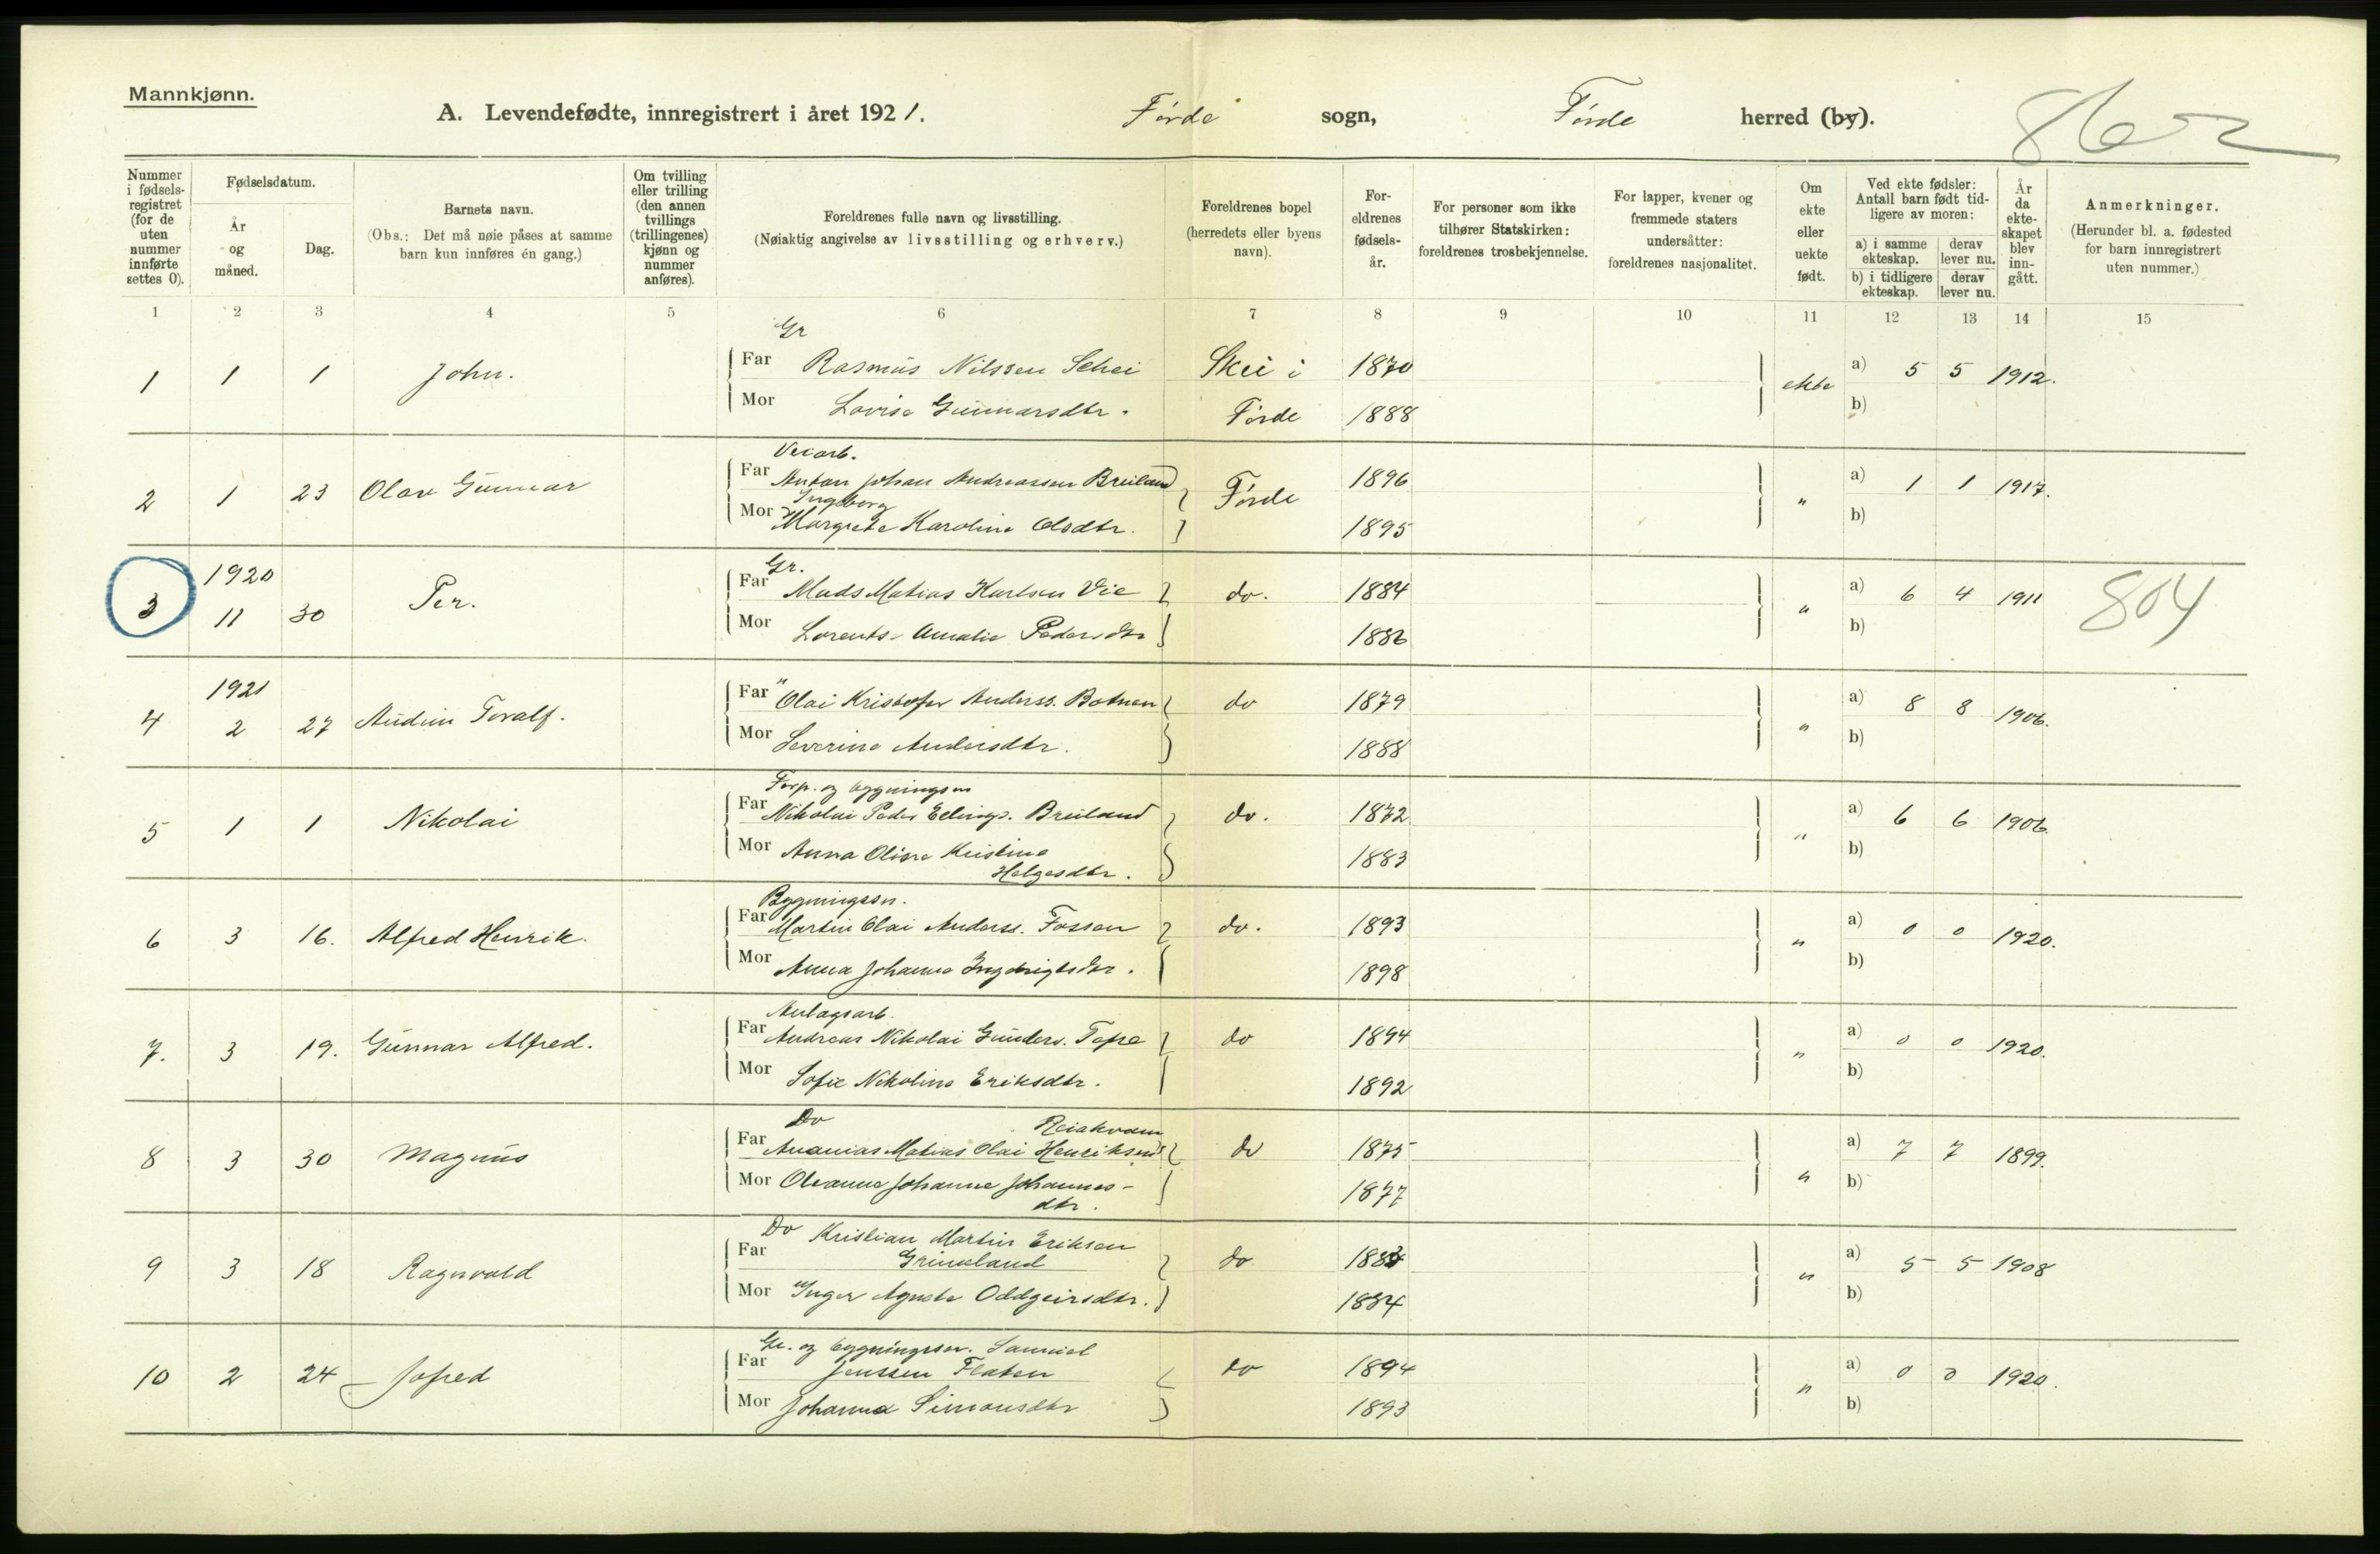 Mannkjønn.
A. Levendefødte, innregistrert i året 1921.
Førde sogn,
Førde herred (by).
Nummer i fødsels-registret (for de uten nummer innførte settes 0).
Fødselsdatum.
År og måned.
Dag.
Barnets navn.
(Obs.: Det må nøie påses at samme barn kun innføres én gang.)
Om tvilling eller trilling (den annen tvillings (trillingenes) kjønn og nummer anføres).
Foreldrenes fulle navn og livsstilling.
(Nøiaktig angivelse av livsstilling og erhverv.)
Foreldrenes bopel (herredets eller byens navn).
For-eldrenes fødsels-år.
For personer som ikke tilhører Statskirken: foreldrenes trosbekjennelse.
For lapper, kvener og fremmede staters undersåtter: foreldrenes nasjonalitet.
Om ekte eller uekte født.
Ved ekte fødsler: Antall barn født tid-ligere av moren:
a) i samme ekteskap.
derav lever nu.
b) i tidligere ekteskap.
derav lever nu.
År da ekte-skapet blev inn-gått.
Anmerkninger.
(Herunder bl. a. fødested for barn innregistrert uten nummer.)
1 2 3 4 5 6 7 8 9 10 11 12 13 14 15
Gr
1 1 1 John. Far Rasmus Nilssen Schei Skei i 1870 ekte a) 5 5 1912.
Mor Lovise Gunnarsdtr. Førde 1888 b)
Veiarb.
2 1 23 Olav Gunnar Far Anton Johan Andreassen Breiland Førde 1896 " a) 1 1 1917.
Ingeborg
Mor Margrete Karoline Olsdtr. 1895 b)
1920 Gr.
3 11 30 Per. Far Mads Matias Karlsen Vie do. 1884 " a) 6 4 1911 804
Mor Lorents Amalie Pedersdtr 1886 b)
1921
4 2 27 Audun Toralf. Far " Olai Kristofer Anderss. Botnen do 1879 " a) 8 8 1906.
Mor Severine Andersdtr. 1888 b)
Forp. og bygningssn
5 1 1 Nikolai Far Nikolai Peder Ellings. Breiland do. 1872 " a) 6 6 1906.
Mor Anna Oline Kristine 1883 b)
Helgesdtr.
Bygningssn.
6 3 16. Alfred Henrik. Far Martin Olai Anderss. Fossen do. 1893 " a) 0 0 1920.
Mor Anna Johanna Ingebrigtsdtr. 1898 b)
Anlagsarb.
7. 3 19. Gunnar Alfred. Far Andreas Nikolai Gunders. Tefre do 1894 " a) 0 0 1920.
Mor Sofie Nikoline Eriksdtr. 1892 b)
Do Reiakvam
8 3 30 Magnus Far Ananias Matias Olai Henriksen do 1875 " a) 7 7 1899.
Mor Oleanna Johanne Johannes- 1877 b)
dtr.
Do Kristian Martin Eriksen
9 3 18 Ragnvald Far Grimeland do 1883 " a) 5 5 1908
Mor Inger Agnete Oddgeirsdtr. 1884 b)
Gr. og bygningssn. Samuel
10 2 24 Jofred Far Jenssen Flaten do 1894 " a) 0 0 1920.
Mor Johanna Simonsdtr 1893 b)